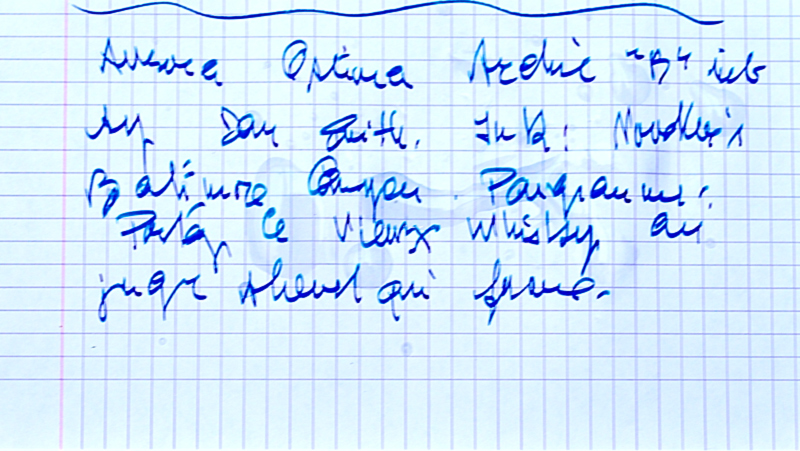 Aurora Optima Archie "B" nib
by Dan Smith. Ink: Noodler's
Baltimore Canyon. Pangramme:
Portez ce vieux whisky au
juge blond qui fume.